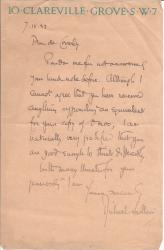 10·CLAREVILLE·GROVE·S·W·7
7.10.43
Dear Mr
Pardon me for not answering
your kind note before. Although I
cannot agree that you have received
anything approaching an equivalent
for your copy of
naturally very that you
are good enough to think differently.
With many thanks for your
generosity, I am
Yours sincerely